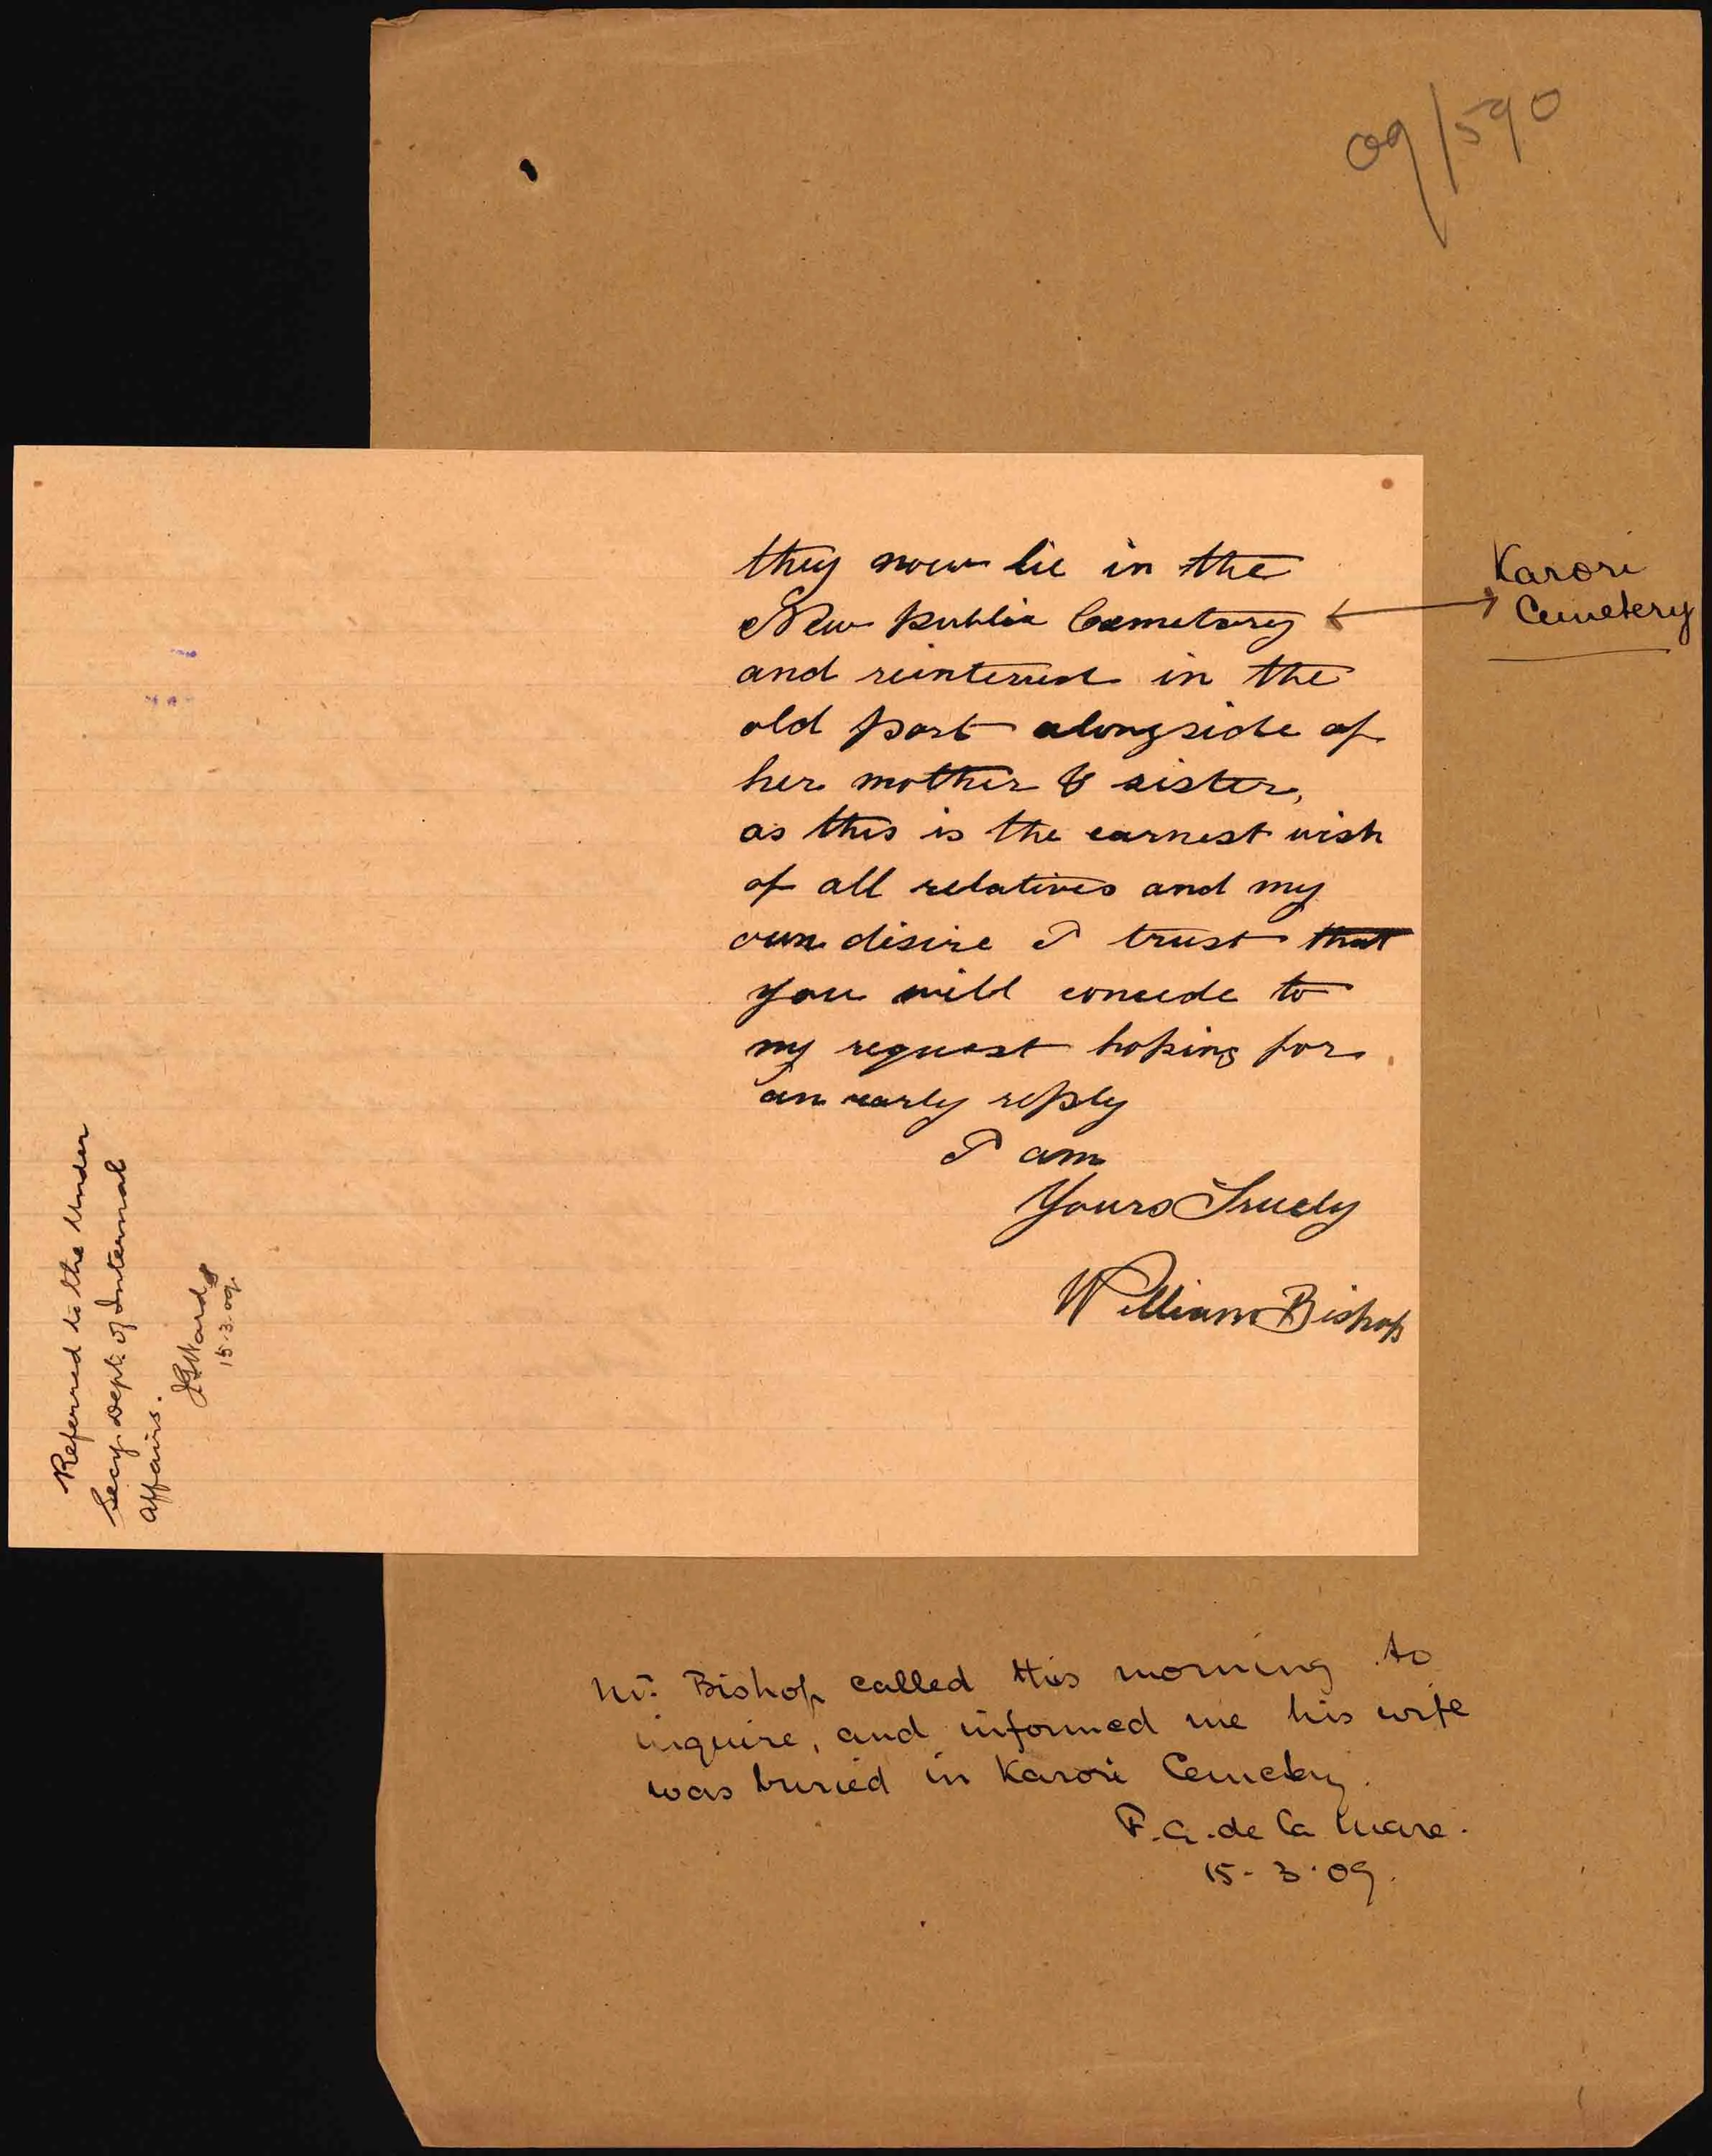 09/590
they now lie in the
New public Cemetary
and reinterred in the
old part alongside of
her mother & sister,
as this is the earnest wish
of all relatives and my
own disire I trust that
you will concede to
my request hoping for
an early reply
I am
Yours Truely
William Bishop
Karori
Cemetery
Referred to the Under
Secy. Dept. of Internal
Affairs.
JGWard
15.3.09.
Mr. Bishop called this morning to
inquire, and informed me his wife
was buried in Karori Cemetery.
F.A. de la Mare.
15-3-09.